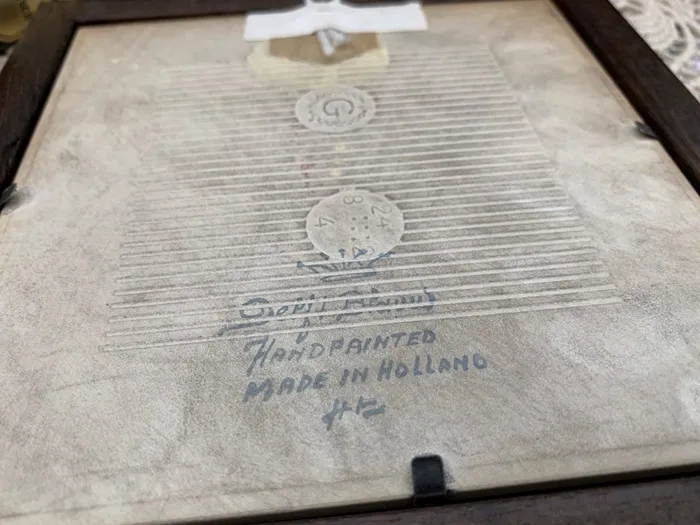 G
24
8
4
Delft Blauw
HANDPAINTED
MADE IN HOLLAND